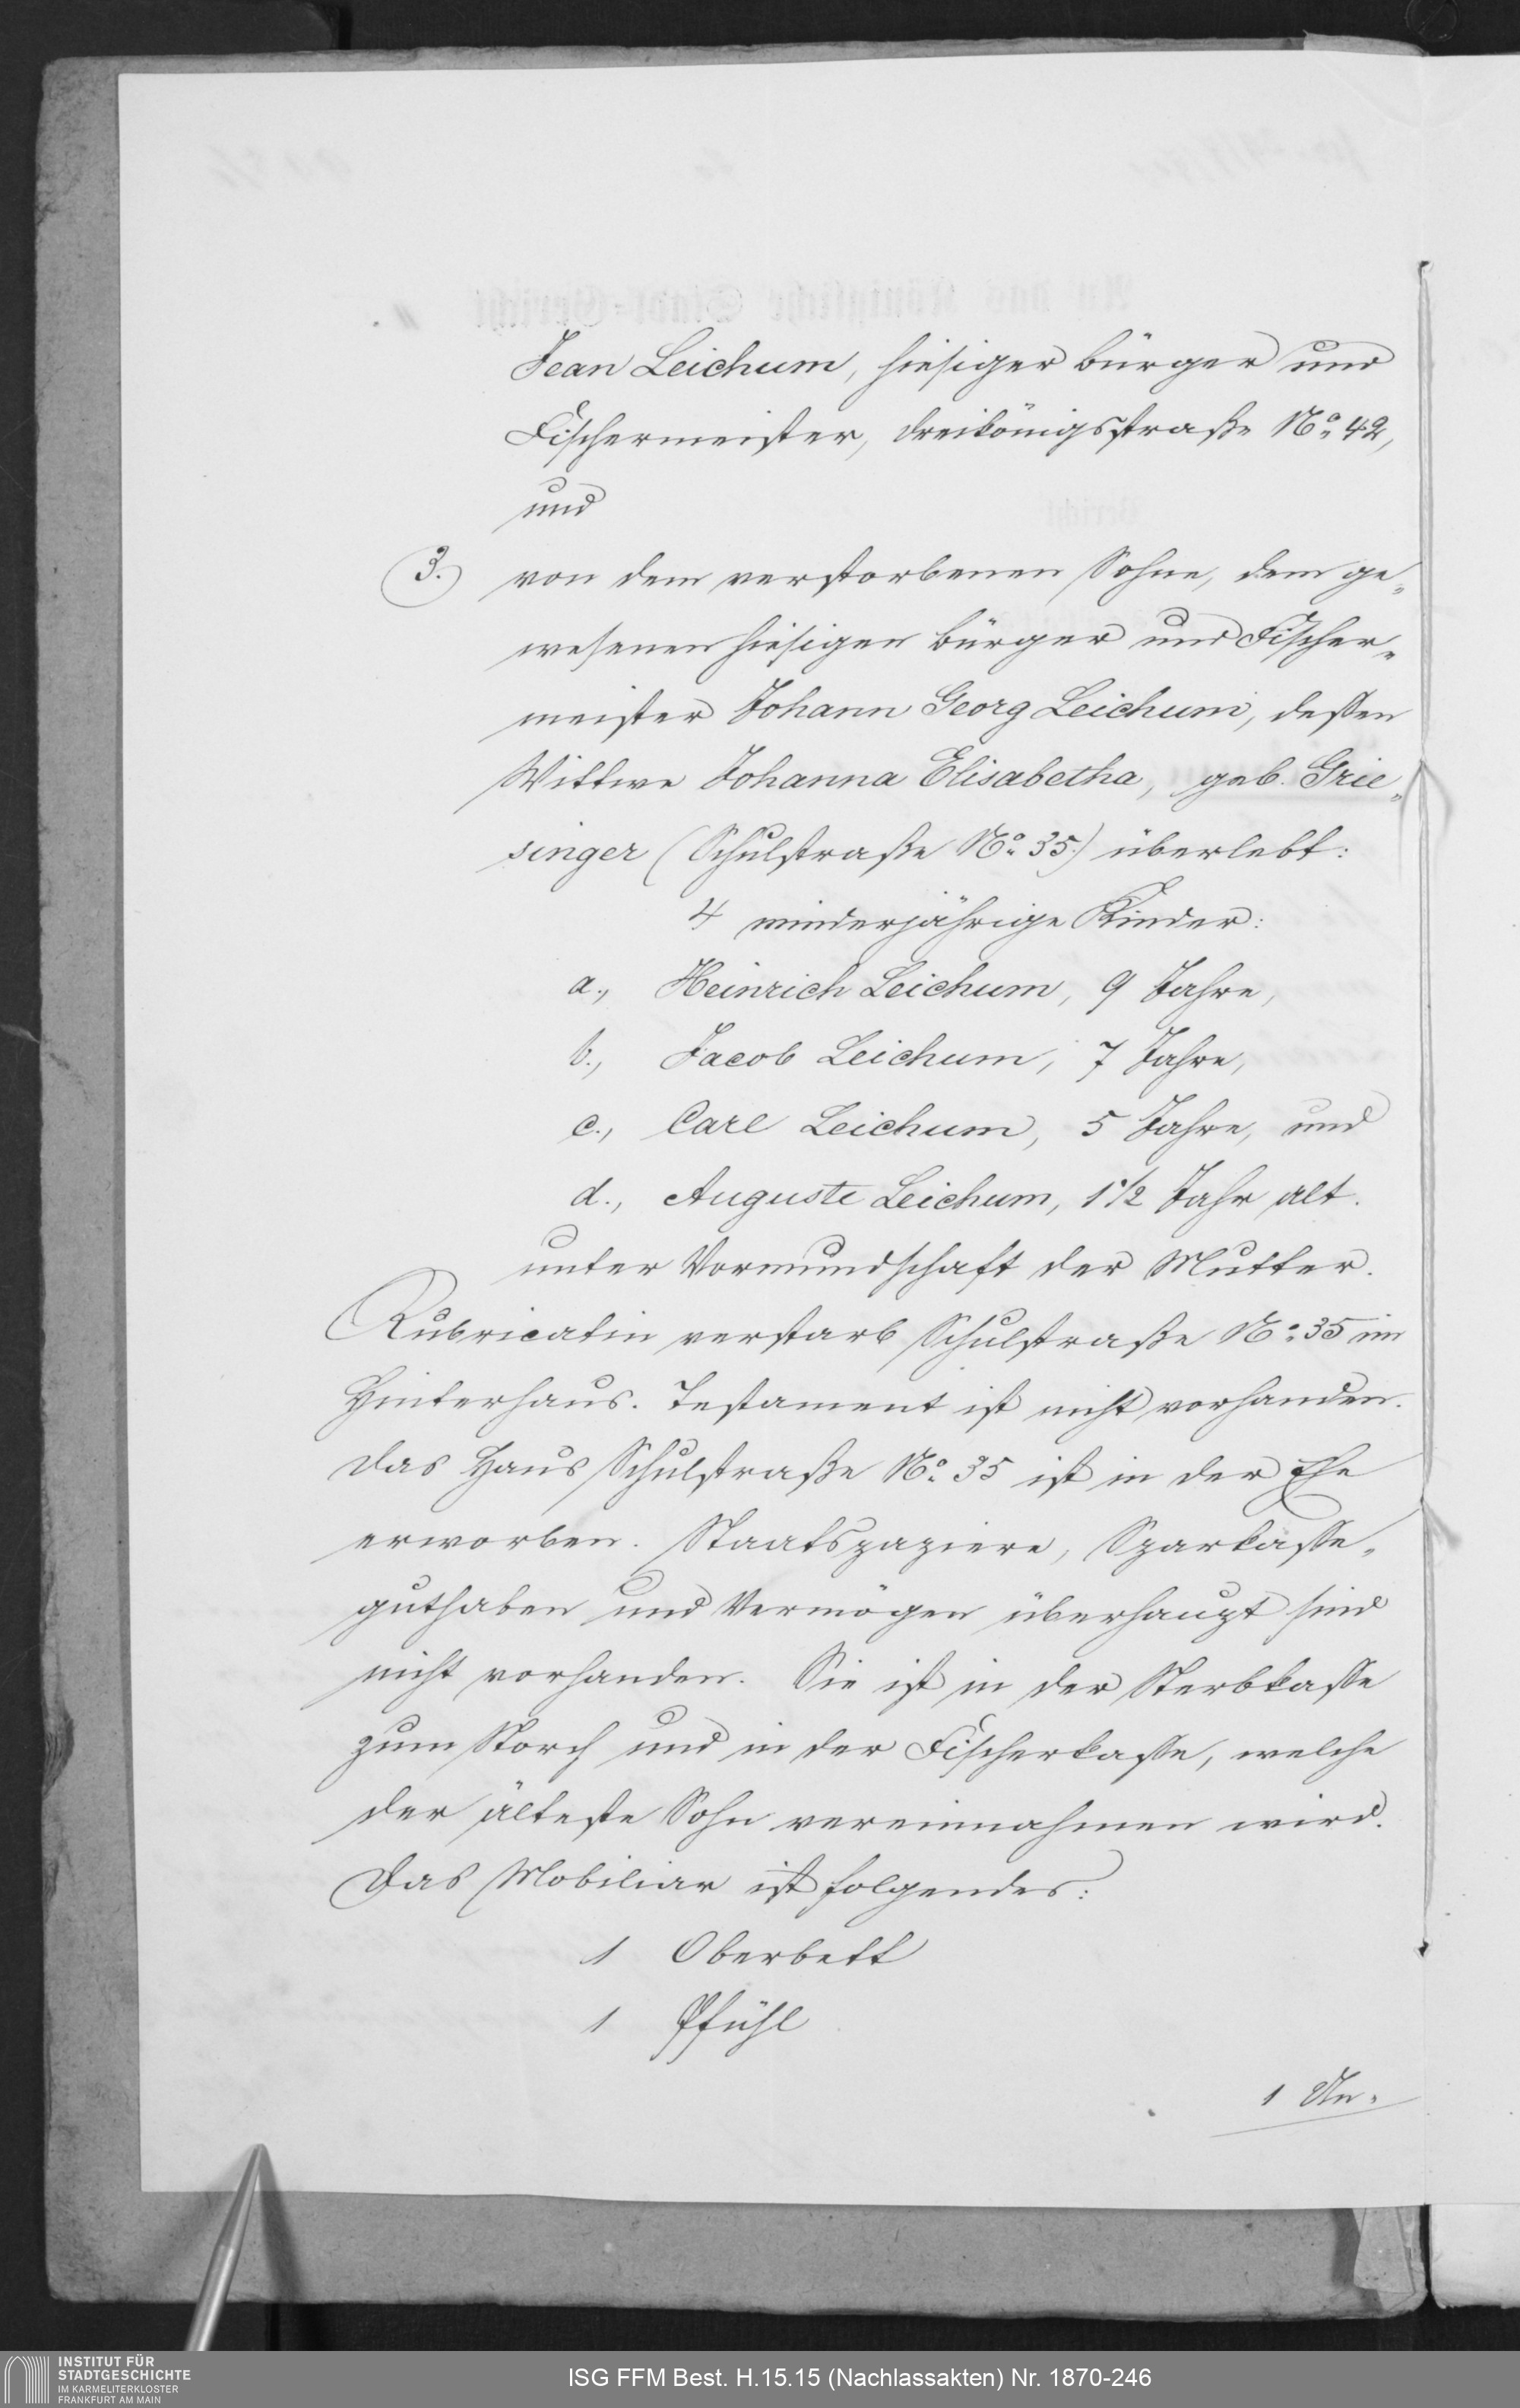 Jean Leichum, hiesiger Bürger und
Fischermeister, Dreikönigsstraße No. 42,
und
3. von dem verstorbenen Sohne, dem ge„
wesenen hiesigen Bürger und Fischer„
meister Johann Georg Leichum, dessen
Wittwe Johanna Elisabetha, geb. Grie„
singer (Schulstraße No. 35.) überlebt:
4 minderjährige Kinder:
a., Heinrich Leichum, 9 Jahre,
b., Jacob Leichum, 7 Jahre,
c., Carl Leichum, 5 Jahre, und
d., Auguste Leichum, 1 1/2 Jahr alt.
unter Vormundschaft der Mutter.
Rubricatin verstarb Schulstraße No. 35 im
Hinterhaus. Testament ist nicht vorhanden.
Das Haus Schulstraße No. 35 ist in der Ehe
erworben. Staatspapiere, Sparkasse„
guthaben und Vermögen überhaupt sind
nicht vorhanden. Sie ist in der Sterbkasse
zum Storch und in der Fischerkasse, welche
der älteste Sohn vereinnahmen wird.
Das Mobiliar ist folgendes:
1 Oberbett
1 Pfühl
1 Un„
INSTITUT FÜR
STADTGESCHICHTE
IM KARMELITERKLOSTER
FRANKFURT AM MAIN
ISG FFM Best. H.15.15 (Nachlassakten) Nr. 1870-246